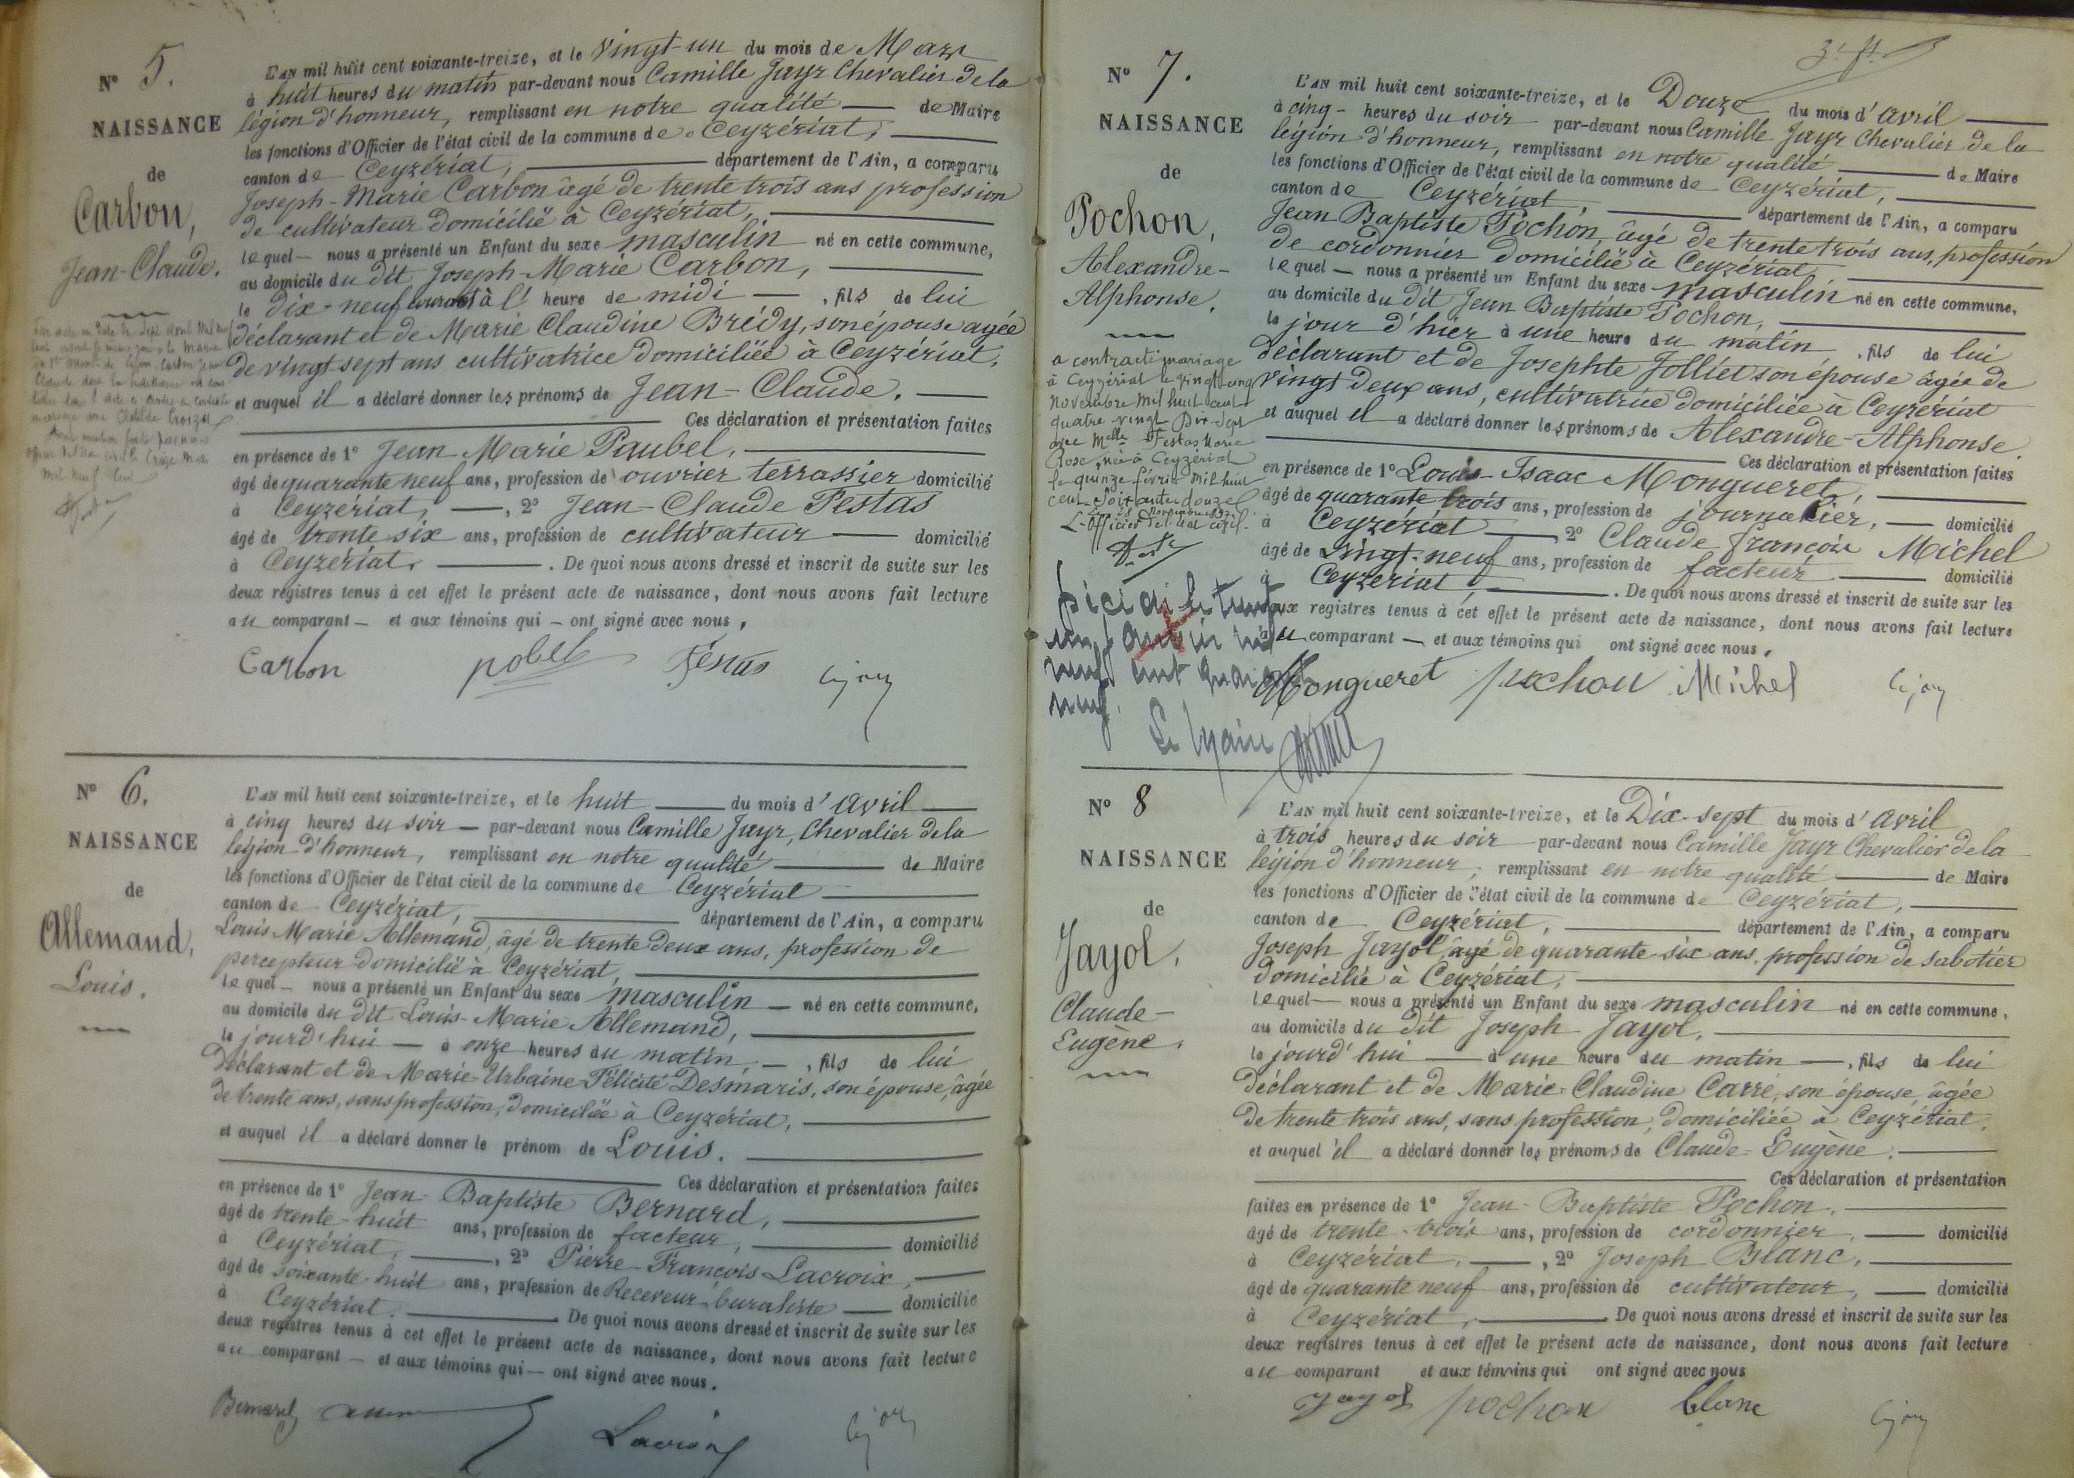 N° 5.
NAISSANCE
de
Carbon,
Jean-Claude.
L'AN mil huit cent soixante-treize, et le vingt-un du mois de Mars
à huit heures du matin par-devant nous Camille Jayr Chevalier de la
légion d'honneur, remplissant en notre qualité de Maire
les fonctions d'Officier de l'état civil de la commune de Ceyzériat,
canton de Ceyzériat, département de l'Ain, a comparu
Joseph-Marie Carbon âgé de trente trois ans profession
de cultivateur domicilié à Ceyzériat,
lequel nous a présenté un Enfant du sexe masculin né en cette commune,
au domicile du dit Joseph-Marie Carbon,
le dix-neuf courant à l' heure de midi, fils de lui
déclarant et de Marie Claudine Brédy, son épouse agée
de vingt sept ans cultivatrice domiciliée à Ceyzériat,
et auquel il a déclaré donner les prénoms de Jean-Claude.
Ces déclaration et présentation faites
en présence de 1° Jean Marie Paubel,
âgé de quarante neuf ans, profession de ouvrier terrassier domicilié
à Ceyzériat, 2° Jean-Claude Festas
âgé de trente six ans, profession de cultivateur domicilié
à Ceyzériat. De quoi nous avons dressé et inscrit de suite sur les
deux registres tenus à cet effet le présent acte de naissance, dont nous avons fait lecture
au comparant et aux témoins qui ont signé avec nous.
Carbon pobel Féstas
N° 6.
NAISSANCE
de
Allemand,
Louis.
L'AN mil huit cent soixante-treize, et le huit du mois d'avril
à cinq heures du soir par-devant nous Camille Jayr, Chevalier de la
légion d'honneur, remplissant en notre qualité de Maire
les fonctions d'Officier de l'état civil de la commune de Ceyzériat
canton de Ceyzériat, département de l'Ain, a comparu
Louis Marie Allemand, âgé de trente deux ans, profession de
percepteur domicilié à Ceyzériat,
lequel nous a présenté un Enfant du sexe masculin né en cette commune,
au domicile du dit Louis-Marie Allemand,
le jourd'hui à onze heures du matin, fils de lui
Déclarant et de Marie-Urbaine Félicité Desmaris, son épouse, âgée
de trente ans, sans profession, domiciliée à Ceyzériat,
et auquel il a déclaré donner le prénom de Louis.
Ces déclaration et présentation faites
en présence de 1° Jean-Baptiste Bernard,
âgé de trente-huit ans, profession de facteur, domicilié
à Ceyzériat, 2° Pierre-François Lacroix,
âgé de soixante-huit ans, profession de Receveur-buraliste domicilié
à Ceyzériat. De quoi nous avons dressé et inscrit de suite sur les
deux registres tenus à cet effet le présent acte de naissance, dont nous avons fait lecture
au comparant et aux témoins qui ont signé avec nous.
Bernard Lacroix
N° 7.
NAISSANCE
de
Pochon,
Alexandre-
Alphonse.
a contracté mariage
à Ceyzériat le vingt cinq
novembre mil huit cent
quatre-vingt Dix-Sept
avec Melle Festas Marie
Rose, née à Ceyzériat
le quinze février mil huit
cent soixante douze
L'officier de l'état civil.
Le Maire
L'AN mil huit cent soixante-treize, et le Douze du mois d'avril
à cinq heures du soir par-devant nous Camille Jayr Chevalier de la
légion d'honneur, remplissant en notre qualité de Maire
les fonctions d'Officier de l'état civil de la commune de Ceyzériat,
canton de Ceyzériat, département de l'Ain, a comparu
Jean Baptiste Pochon, âgé de trente trois ans, profession
de cordonnier domicilié à Ceyzériat,
lequel nous a présenté un Enfant du sexe masculin né en cette commune,
au domicile du dit Jean Baptiste Pochon,
le jour d'hier à une heure du matin, fils de lui
déclarant et de Josephte Jolliet son épouse âgée de
vingt deux ans, cultivatrice domiciliée à Ceyzériat
et auquel il a déclaré donner les prénoms de Alexandre-Alphonse.
Ces déclaration et présentation faites
en présence de 1° Louis-Isaac Mongueret,
âgé de quarante trois ans, profession de journalier, domicilié
à Ceyzériat 2° Claude françois Michel
âgé de vingt-neuf ans, profession de facteur domicilié
à Ceyzériat. De quoi nous avons dressé et inscrit de suite sur les
deux registres tenus à cet effet le présent acte de naissance, dont nous avons fait lecture
au comparant et aux témoins qui ont signé avec nous.
Mongueret pochon Michel
N° 8
NAISSANCE
de
Jayol,
Claude-
Eugène.
L'AN mil huit cent soixante-treize, et le Dix-sept du mois d'avril
à trois heures du soir par-devant nous Camille Jayr Chevalier de la
légion d'honneur, remplissant en notre qualité de Maire
les fonctions d'Officier de l'état civil de la commune de Ceyzériat,
canton de Ceyzériat, département de l'Ain, a comparu
Joseph Jayol, âgé de quarante-six ans, profession de sabotier
domicilié à Ceyzériat,
lequel nous a présenté un Enfant du sexe masculin né en cette commune,
au domicile du dit Joseph Jayol,
le jourd'hui à une heure du matin, fils de lui
déclarant et de Marie-Claudine Carre, son épouse, âgée
de trente trois ans, sans profession, domiciliée à Ceyzériat,
et auquel il a déclaré donner les prénoms de Claude-Eugène.
Ces déclaration et présentation
faites en présence de 1° Jean-Baptiste Pochon,
âgé de trente-trois ans, profession de cordonnier, domicilié
à Ceyzériat, 2° Joseph Blanc,
âgé de quarante neuf ans, profession de cultivateur, domicilié
à Ceyzériat, De quoi nous avons dressé et inscrit de suite sur les
deux registres tenus à cet effet le présent acte de naissance, dont nous avons fait lecture
au comparant et aux témoins qui ont signé avec nous
jayol pochon blanc